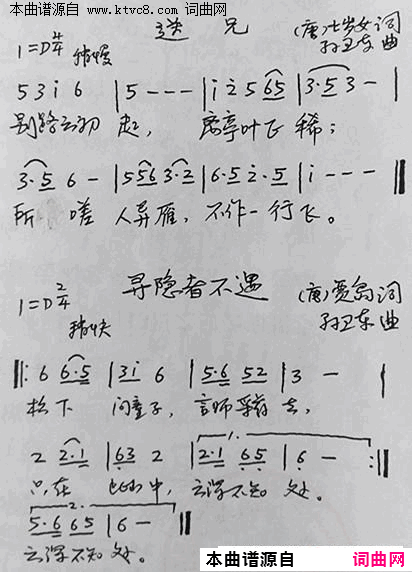 本曲谱源自 www.ktvc8.com 词曲网
送 兄
1=D 4/4 稍慢
(唐)七岁女 词
孙卫东 曲
5 3 i 6 | 5 - - - | i 2 5 65 | 3·5 3 - |
别路云初 起， 离亭叶飞 稀；
3·5 6 - | 556 3·2 | 6·5 2·5 | i - - - ||
所 嗟 人异雁，不作一行飞。
寻隐者不遇
1=D 2/4 稍快
(唐)贾岛 词
孙卫东 曲
||: 6 6·5 | 3i 6 | 5·6 52 | 3 - |
松下 问童子，言师采药 去，
2 2·1 | 63 2 | 2·1 65 | 6 - :||
1.
只在 此山中，云深不知 处。
2.
5·6 65 | 6 - ||
云深不知 处。
本曲谱源自 词曲网